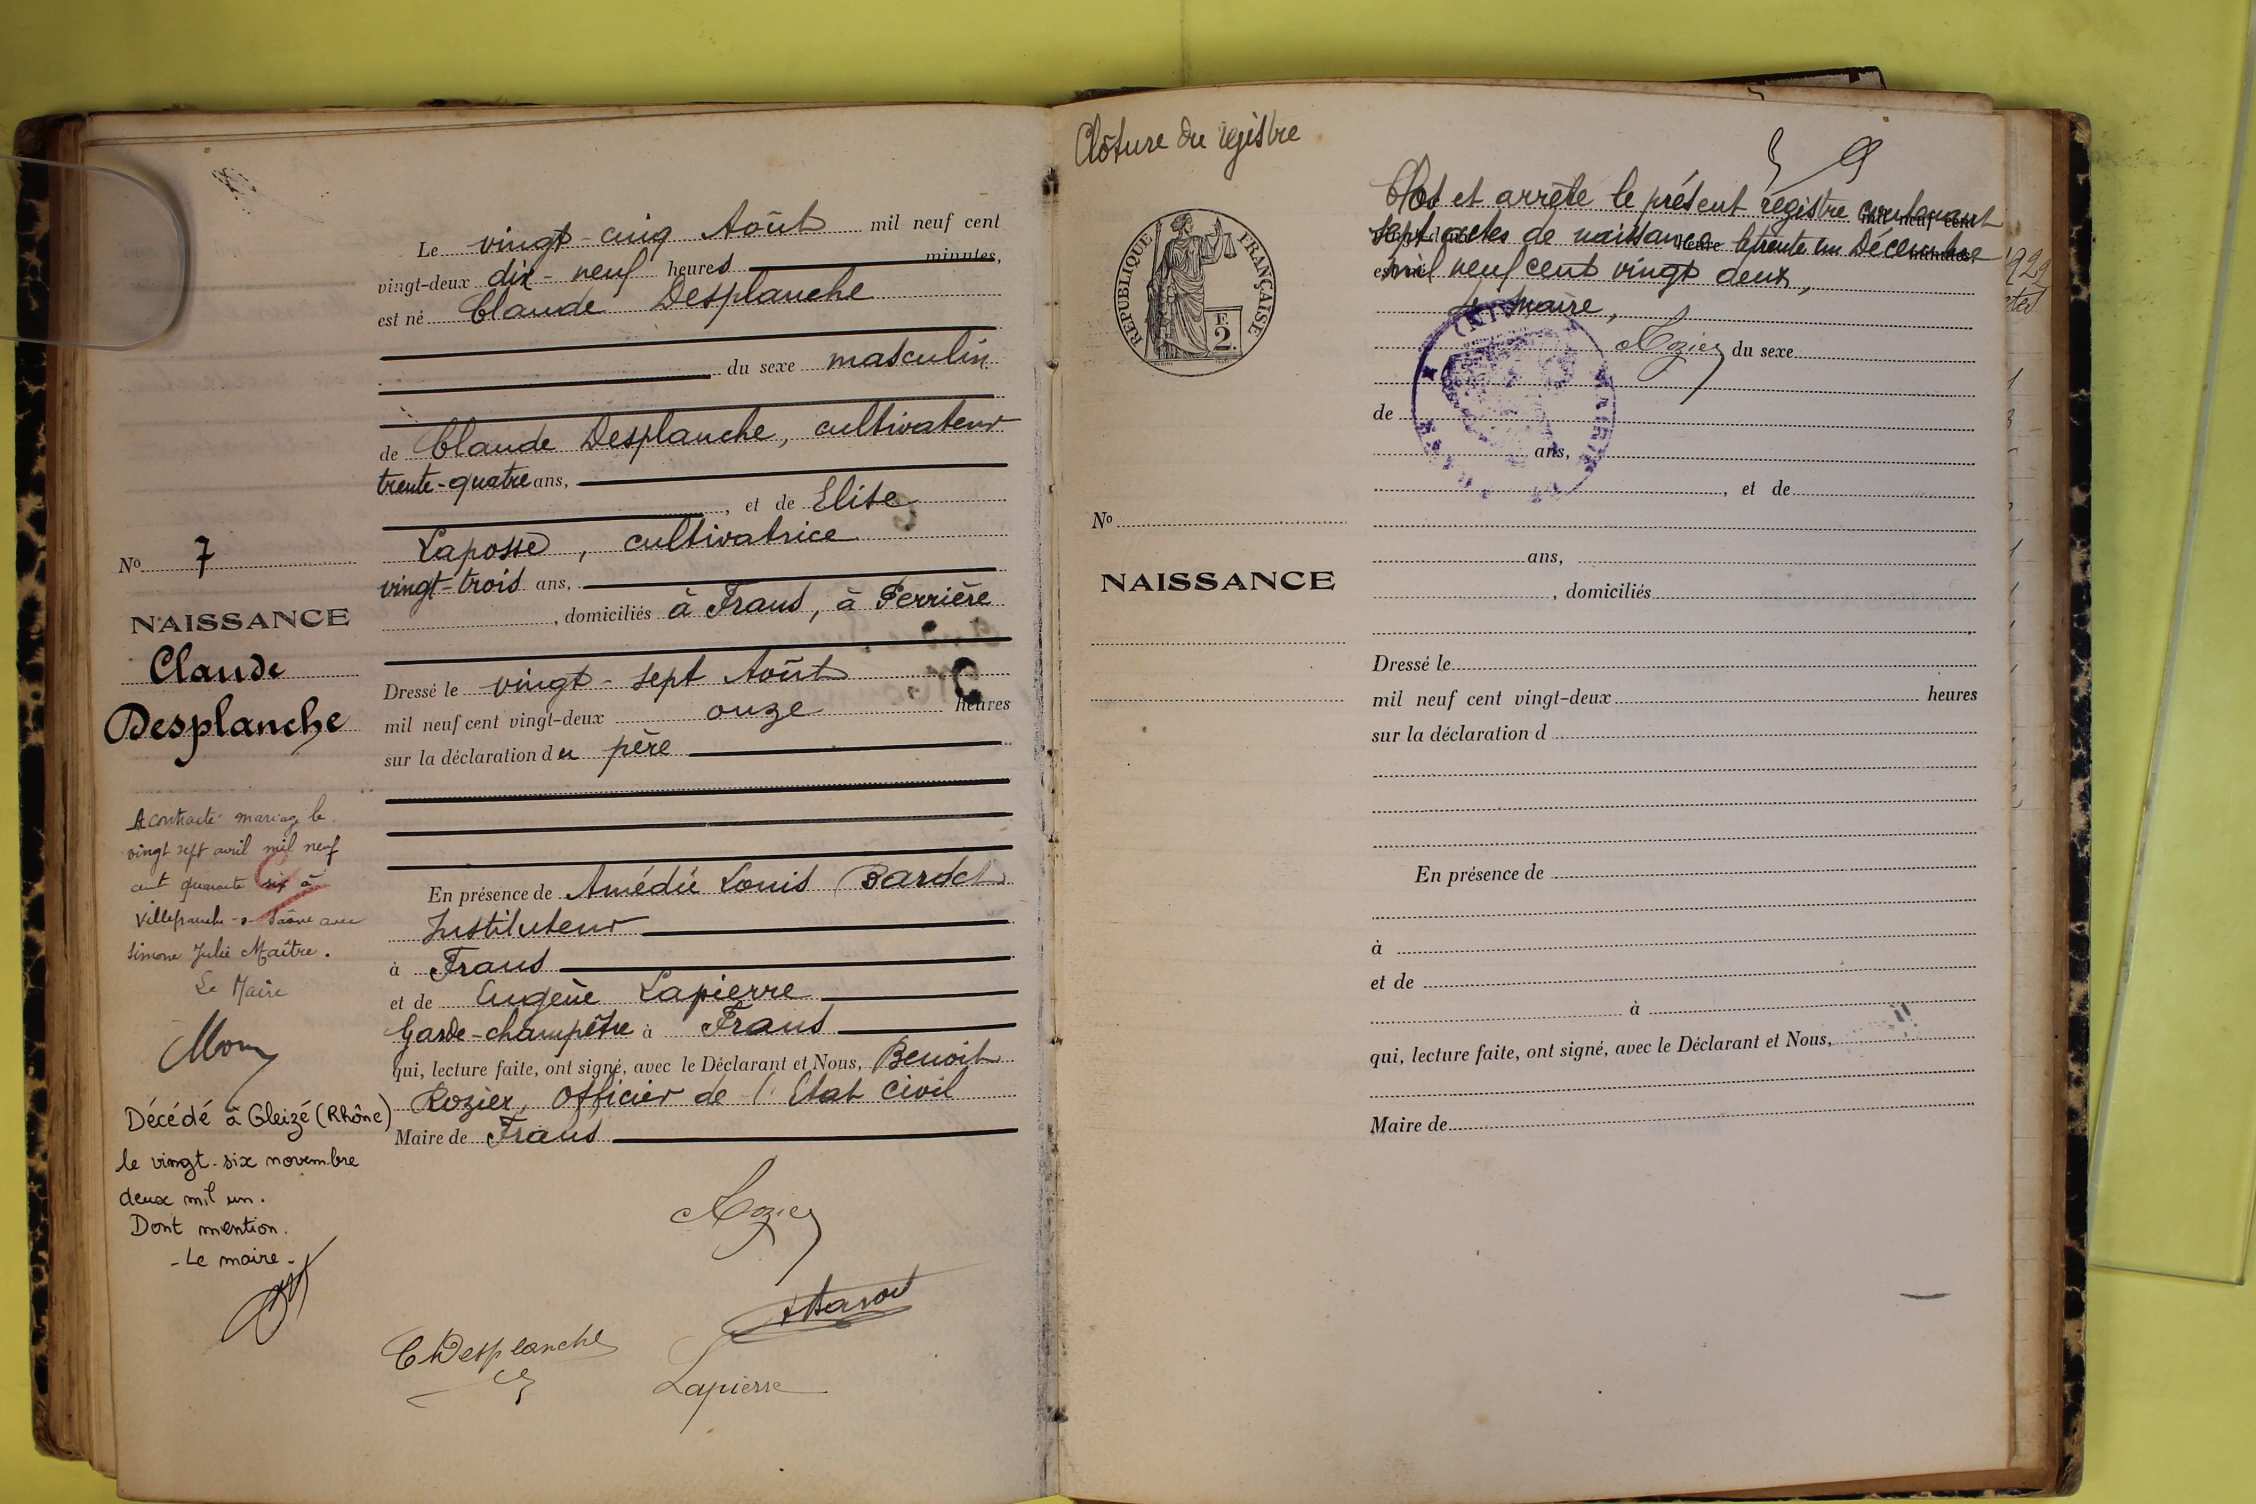 Le vingt-cinq Août mil neuf cent
vingt-deux dix-neuf heures minutes,
est né Claude Desplanche
du sexe masculin
de Claude Desplanche, cultivateur
trente-quatre ans,
, et de Elise
Laposse, cultivatrice
vingt-trois ans,
, domiciliés à Frans, à Perrière
Dressé le vingt-sept Août
mil neuf cent vingt-deux onze heures
sur la déclaration du père
En présence de Amédée Louis
Instituteur
à Frans
et de Eugène Lapierre
Garde-champêtre à Frans
qui, lecture faite, ont signé, avec le Déclarant et Nous, Benoit
Rozier, Officier de l'Etat Civil
Maire de Frans
Rozier
C Desplanche
Lapierre
No 7
NAISSANCE
Claude
Desplanche
A contracté mariage le
vingt sept avril mil neuf
cent quarante six à
Villefranche-s-Saône avec
Simone Julie Maître.
Le Maire
Décédé à Gleizé (Rhône)
le vingt-six novembre
deux mil un.
Dont mention.
-Le maire-
Clôture du registre
RÉPUBLIQUE FRANÇAISE
F.
2
No
NAISSANCE
Clos et arrêté le présent registre contenant
sept actes de naissance le trente un Décembre
mil neuf cent vingt deux,
Le Maire,
Rozier du sexe
MAIRIE
(AIN)
de
ans,
, et de
ans,
, domiciliés
Dressé le
mil neuf cent vingt-deux heures
sur la déclaration d
En présence de
à
et de
à
qui, lecture faite, ont signé, avec le Déclarant et Nous,
Maire de